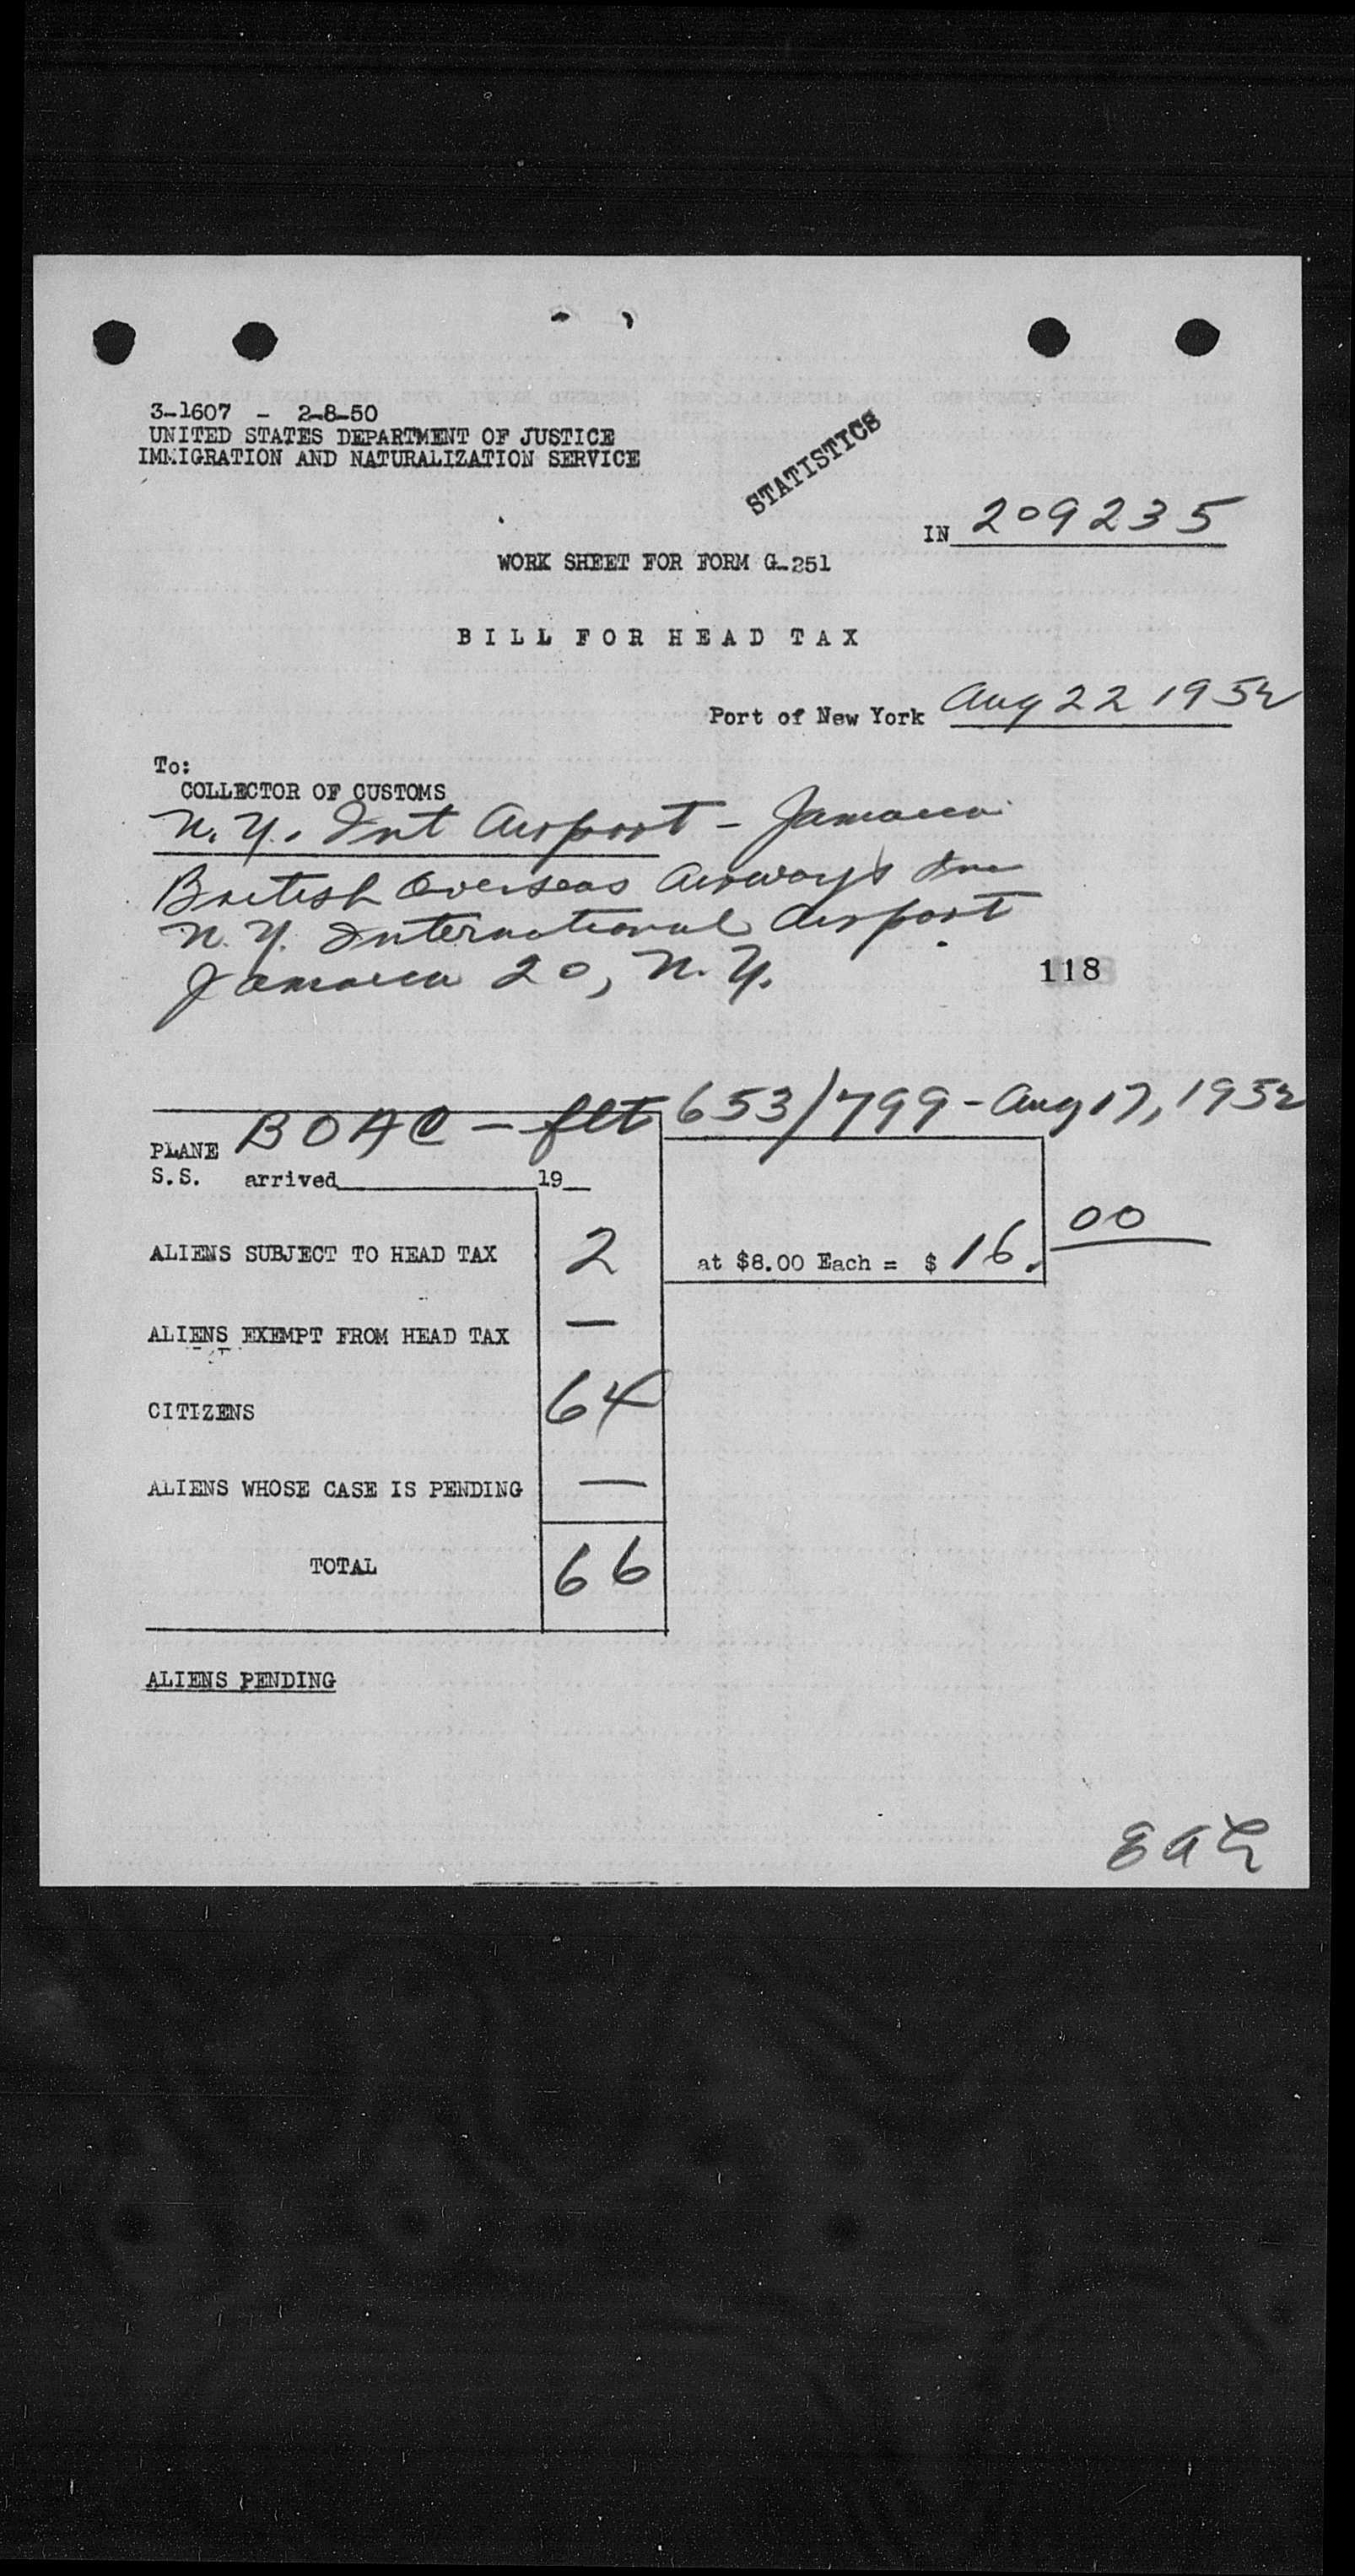 3-1607 - 2-8-50
UNITED STATES DEPARTMENT OF JUSTICE
IMMIGRATION AND NATURALIZATION SERVICE
STATISTICS
IN 209235
WORK SHEET FOR FORM G-251
BILL FOR HEAD TAX
Port of New York Aug 22 1952
To:
COLLECTOR OF CUSTOMS
N.Y. Int Airport - Jamaica
British Overseas Airways Inc
N.Y. International Airport
Jamaica 20, N.Y.
118
PLANE BOAC - flt 653/799 - Aug 17, 1952
S.S. arrived 19
ALIENS SUBJECT TO HEAD TAX 2 at $8.00 Each = $ 16. 00
ALIENS EXEMPT FROM HEAD TAX —
CITIZENS 64
ALIENS WHOSE CASE IS PENDING —
TOTAL 66
ALIENS PENDING